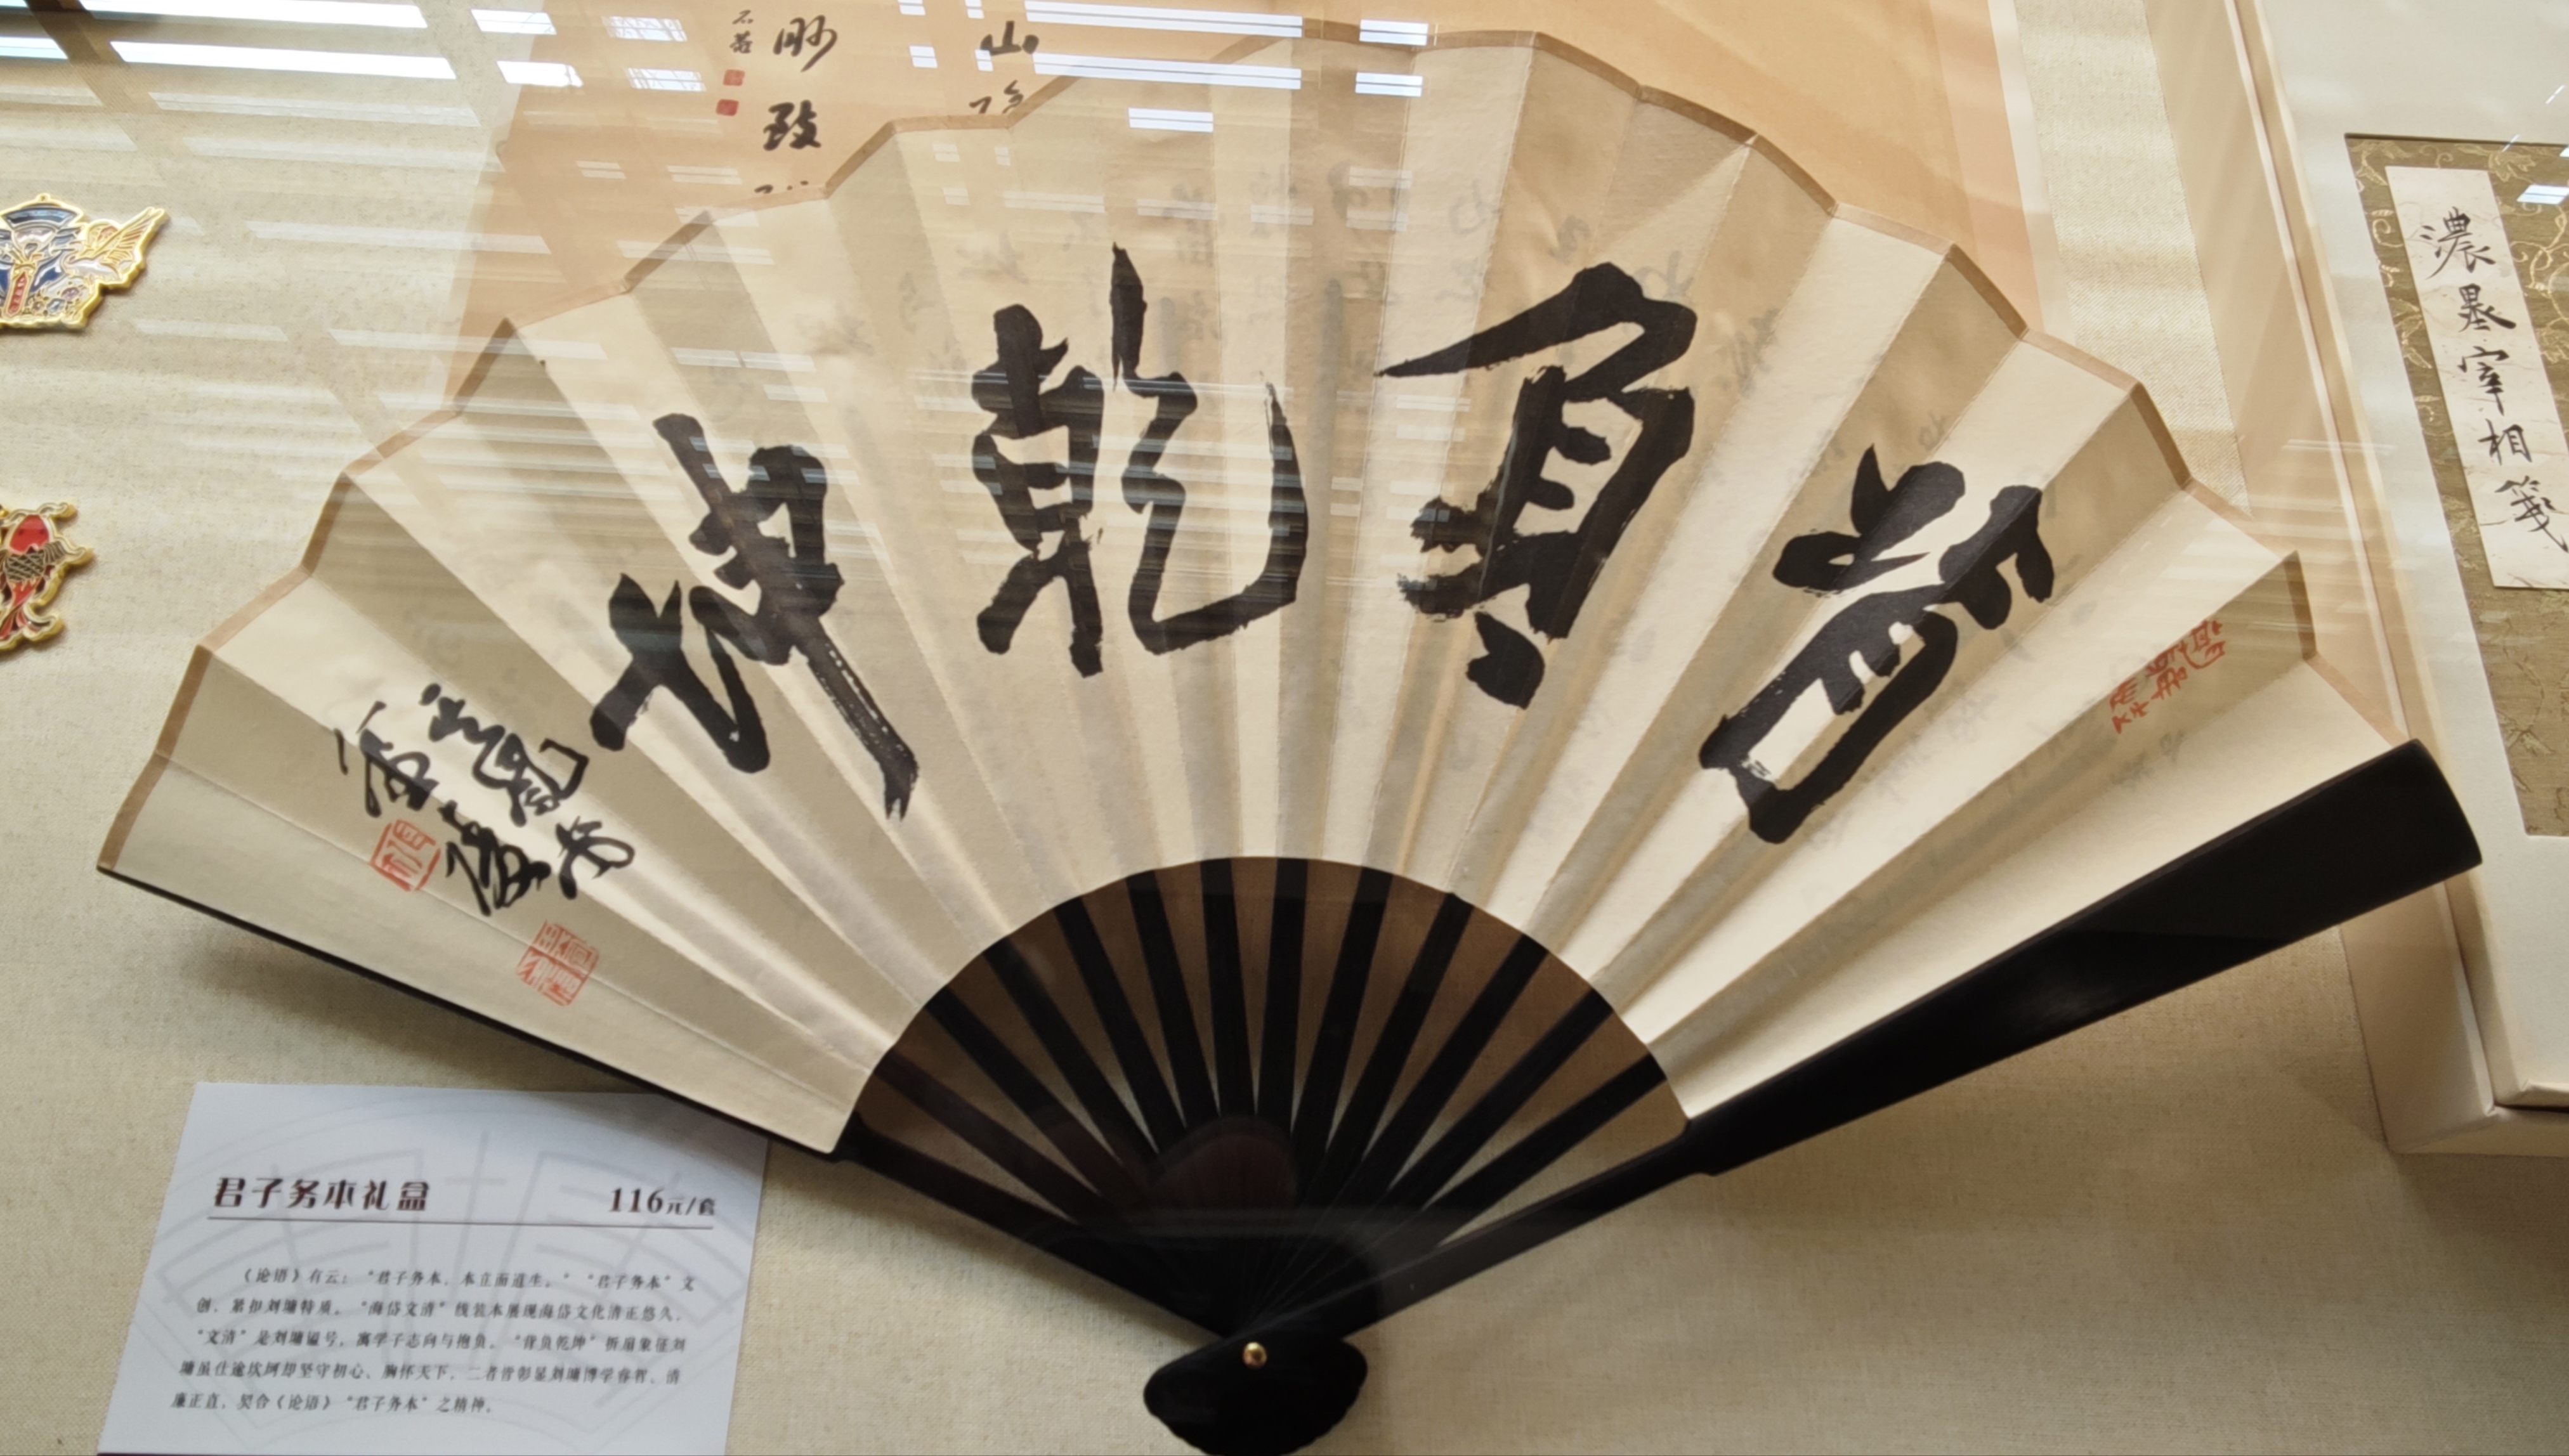 背負乾坤
君子务本礼盒
116元/套
《论语》有云：“君子务本，本立而道生。”“君子务本”文
创，紧扣刘墉特质。“海岱文清”线装本展现海岱文化清正悠久。
“文清”是刘墉谥号，寓学子志向与抱负。“背负乾坤”折扇象征刘
墉虽仕途坎坷却坚守初心、胸怀天下，二者皆彰显刘墉博学睿智、清
廉正直，契合《论语》“君子务本”之精神。
濃墨宰相箋
山
石菴